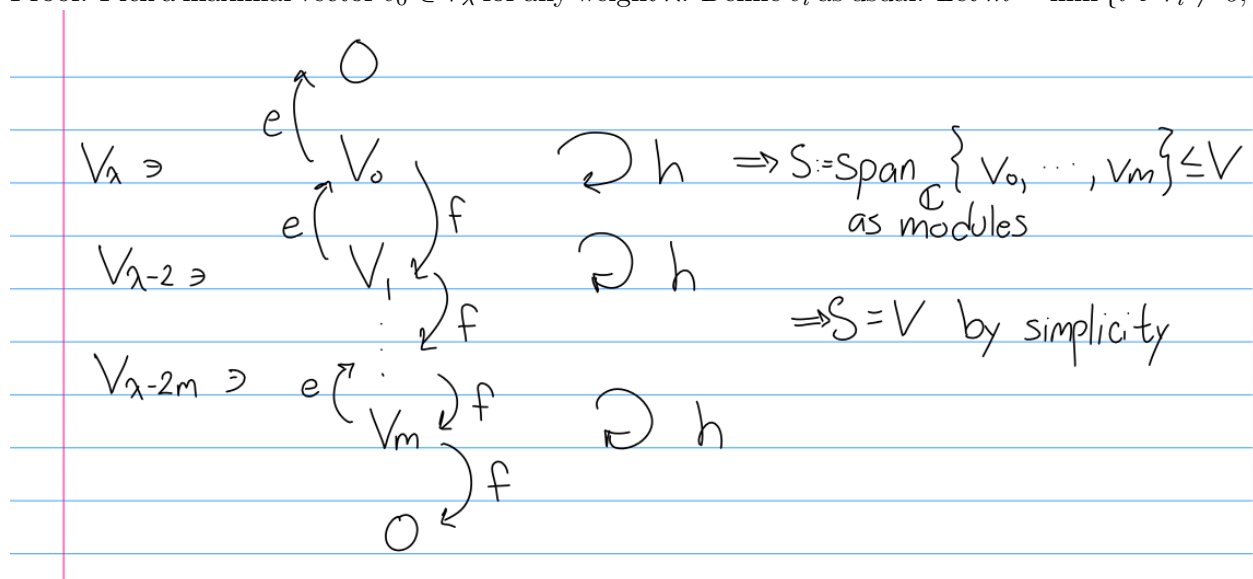 O
e
V_λ ∋ V_0 h ⇒ S:=span_ℂ {V_0, ⋯, V_m} ≤ V
as modules
e f
V_{λ-2} ∋ V_1 h
f
⇒ S = V by simplicity
V_{λ-2m} ∋ e f
V_m h
f
O